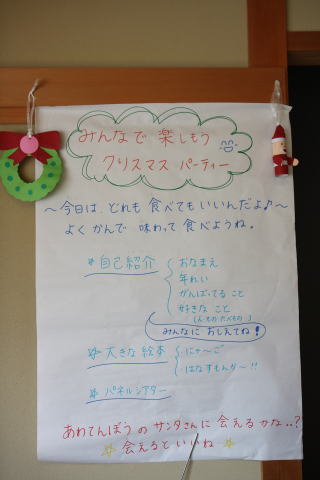 みんなで楽しもう
クリスマスパーティー
～今日は、どれも食べてもいいんだよ♪～
よくかんで 味わって食べようね。
* 自己紹介
おなまえ
年れい
がんばってること
好きなこと
(人・もの・たべもの)
みんなにおしえてね!
* 大きな絵本
にゃ〜ご
はなすもんか〜!!
* パネルシアター
あわてんぼうのサンタさんに会えるかな..?
☆会えるといいね☆